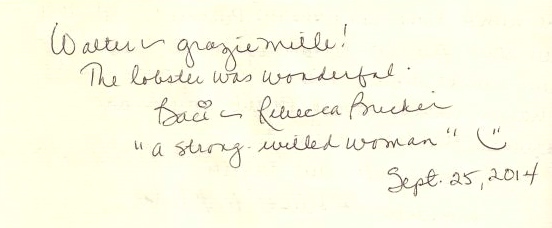 Walter ~ grazie mille!
The lobster was wonderful.
Baci ~ Rebecca Brucker
"a strong-willed woman"
Sept. 25, 2014